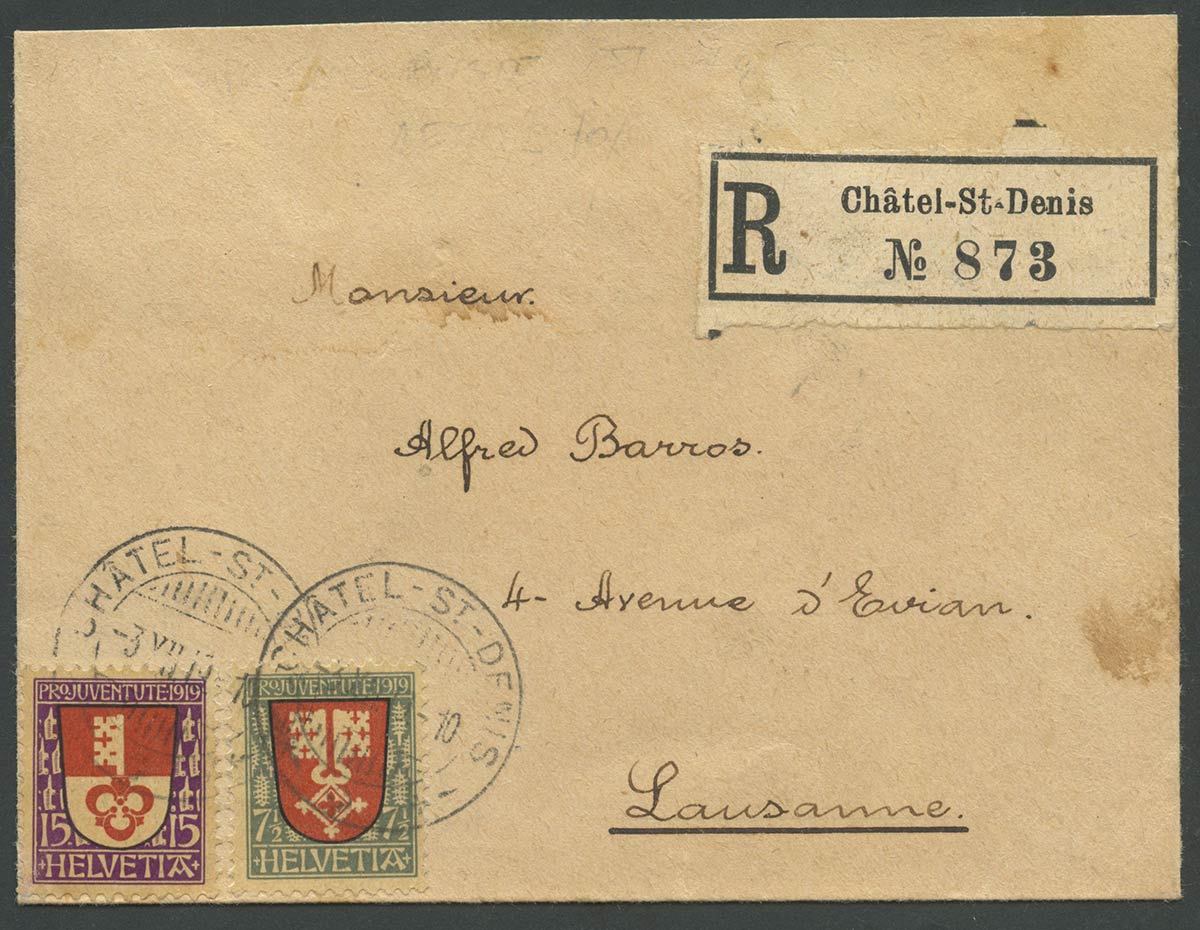 R
Châtel-St-Denis
№ 873
Monsieur.
Alfred Barros.
4- Avenue d'Evian.
Lausanne.
CHÂTEL-ST-
-3.XII.19
CHÂTEL-ST-DENIS
10
PRO JUVENTUTE 1919
15 15
HELVETIA
PRO JUVENTUTE 1919
7½ 7½
HELVETIA